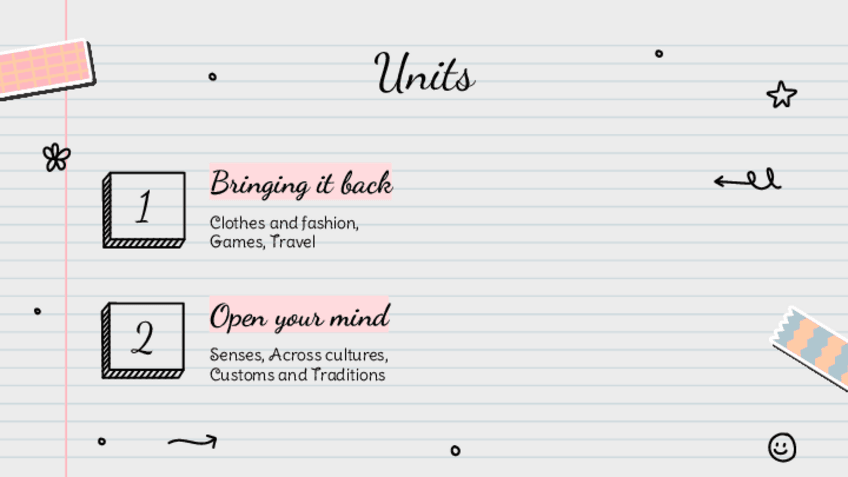 Units
1
Bringing it back
Clothes and fashion,
Games, Travel
2
Open your mind
Senses, Across cultures,
Customs and Traditions